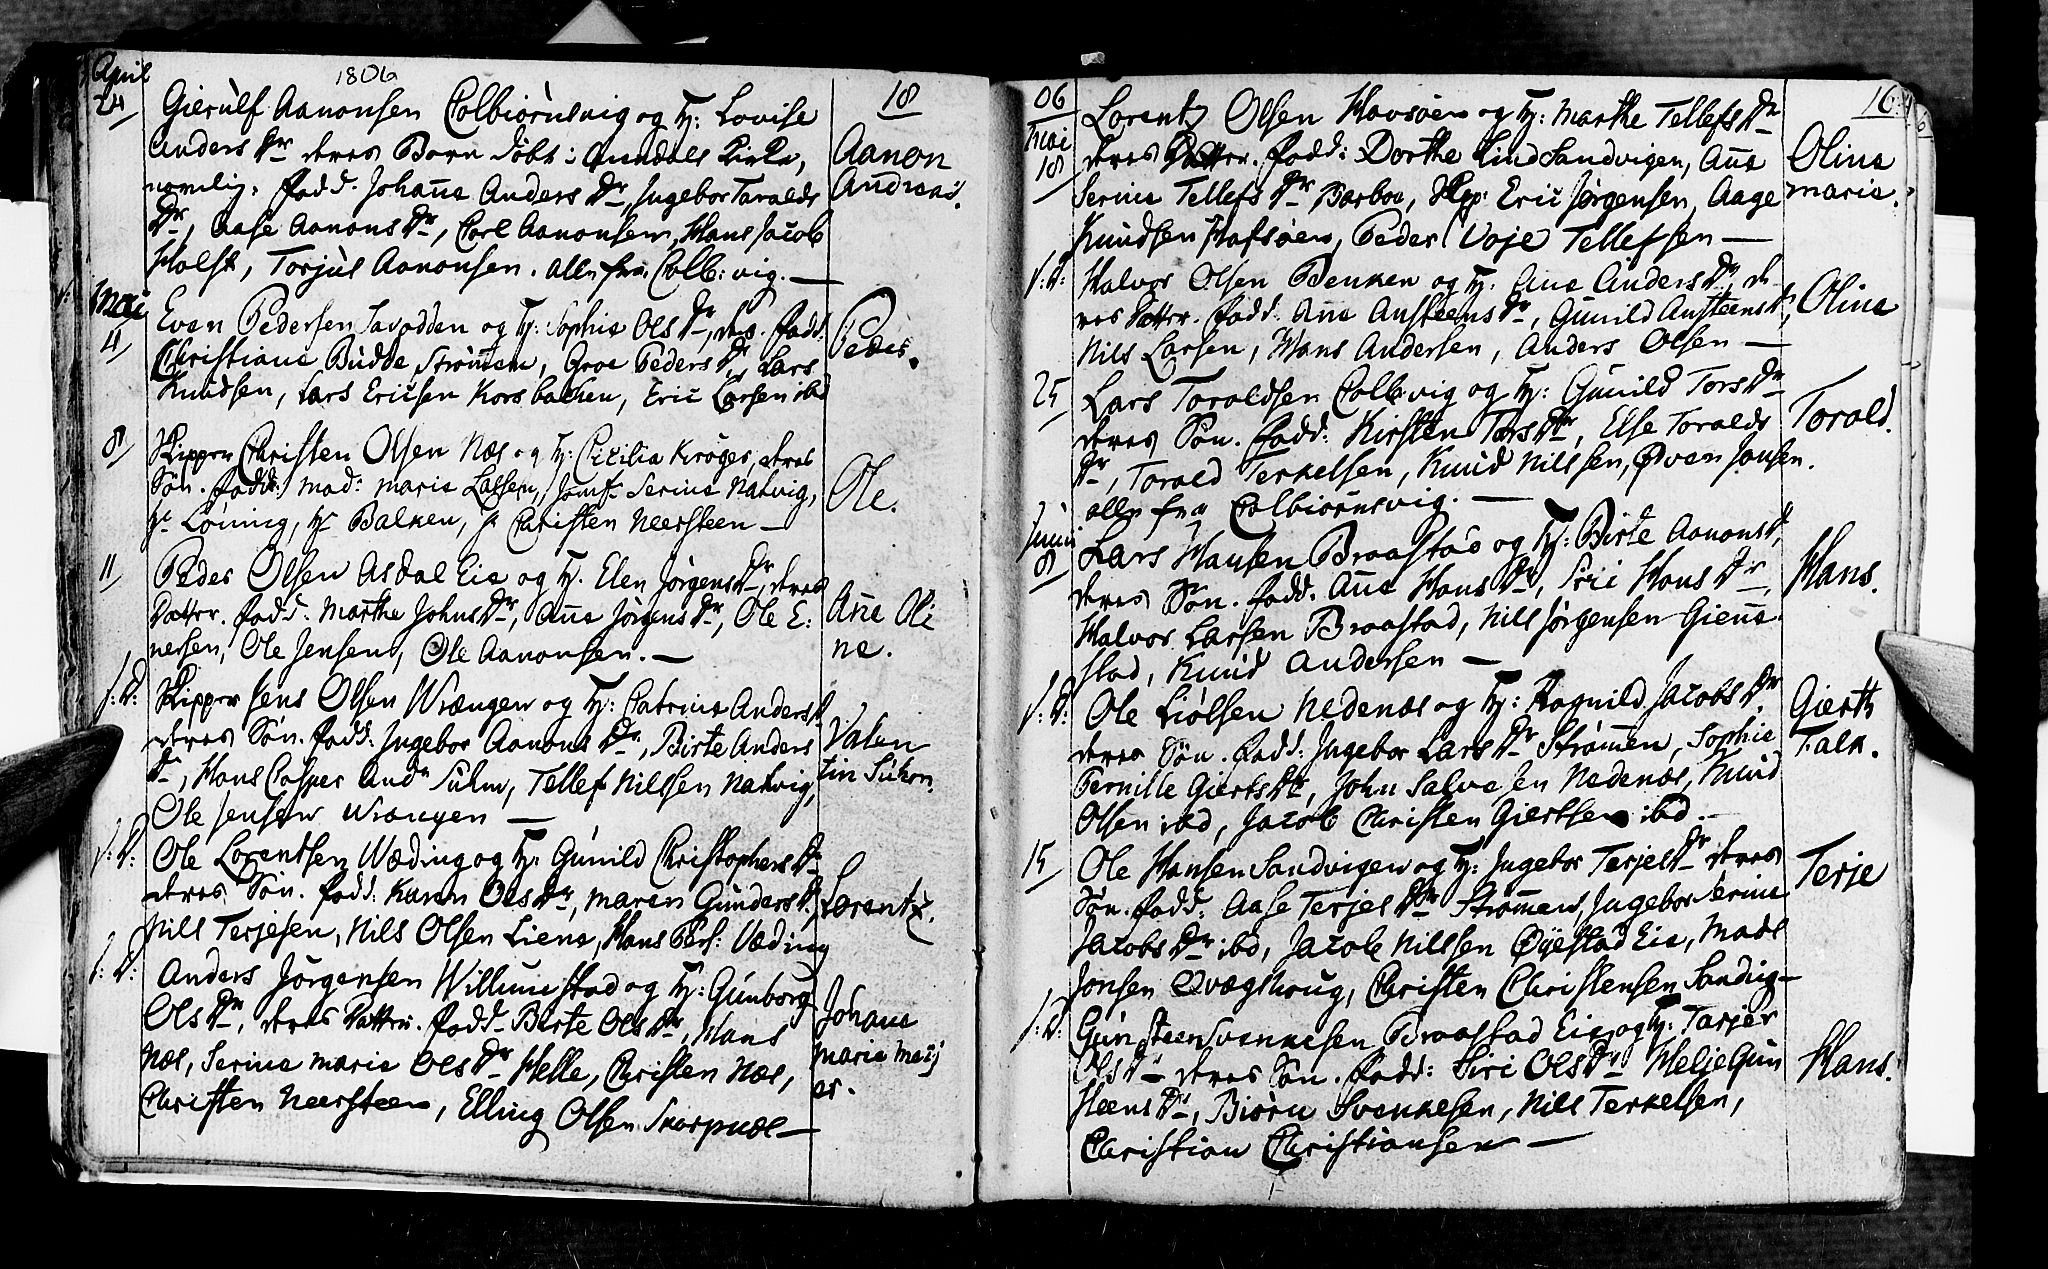 April 1806 18
24/ Gierulf Aanonsen Colbiørnsvig og H: Lovise
Anders Dr deres Barn døbt i Arendals Kirke, Aanon
nemlig: fadd. Johane Anders Dr, Ingebor Taralds Andreas.
Dr, Aase Aanons Dr, Carl Aanonsen, Hans Jacob
Holst, Torjul Aanonsen. alle fra Colb: vig. —
Maii Even Pedersen Savodden og H: Sophie Ols Dr, ds. fadd: Peder.
4/ Christiane Budde Strømen, Groe Peders Dr, Lars
Knudsen, Lars Ericsen Korsbacken, Eric Larsen ibd
8/ Skipper Christen Olsen Næs og H: Cicilia Krøger, deres
Søn. fadd: Mad: Marie Lassen, Jomf. Serine Natvig, Ole.
Hr Løning, Hr Balken, Sr Christen Neersteen —
11/ Peder Olsen Asdal Eie og H. Elen Jørgens Dr, deres
Datter. fadd: Marthe Johns Dr, Ane Jørgens Dr, Ole E: Ane Oli
nersen, Ole Jensen, Ole Aanonsen. — ne.
S: D: Skipper Jens Olsen Wrængen og H: Catrine Anders D.
deres Søn. fadd: Ingebor Aanons Dr, Birte Anders Valen
Dr, Hans Casper And. Suhm, Tellef Nilssen Natvig, tin Suhm.
Ole Jensen Wrængen —
S: D: Ole Lorentsen Wæding og H: Gunild Christophers Dr
deres Søn. fadd: Karen Ols Dr, Maren Gunders D. Lorentz.
Nils Terjesen, Nils Olsen Liene, Hans Pers: Væding
S: D: Anders Jørgensen Willumstad og H: Gunborg
Ols Dr, deres Datter. fadd. Birte Ols Dr, Hans Johane
Næs, Serine Marie Ols Dr Helle, Christen Næs, Marie Meij
Christen Neersteen, Elling Olsen Skarpnæs — er.
06 16
Maii Lorentz Olsen Havsøen og H: Marthe Tellefs Dr
18/ deres Datter. fadd: Dorthe Lind Sandvigen, Ane Oline
Serine Tellefs Dr Barboe, Skpp: Eric Jørgensen, Aage Marie.
Knudsen Hafsøen, Peder Voje Tellefsen —
S: D: Halvor Olsen Benken og H: Ane Anders Dr, de-
res Datter. fadd: Ane Austeens Dr, Gunild Austeens D, Oline
Nils Larsen, Hans Andersen, Anders Olsen —
25/ Lars Taraldsen Colb:vig og H: Gunild Tors Dr
deres Søn. fadd: Kirsten Tors Dr, Else Taralds Torald.
Dr, Torald Terkelsen, Knud Nilssen, Øven Jonsen.
alle fra Colbiørnsvig. —
Junii Lars Hansen Braastad og H: Birte Aanons D,
8/ deres Søn. fadd. Ane Hans Dr, Siri Hans Dr, Hans.
Halvor Larsen Braastad, Nils Jørgensen Giene
stad, Knud Andersen —
S: D: Ole Liølsen Nedenæs og H: Ragnild Jacobs Dr Giert
deres Søn. fadd: Ingebor Lars Dr Strømen, Sophie Falk.
Pernille Gierts Dr, John Salvesen Nedenæs, Knud
Olsen ibd, Jacob Christen Giertsen ibd. —
15/ Ole Hansen Sandvigen og H: Ingebor Terjes Dr deres
Søn. fadd: Aase Terjes Dr Strømen, Ingebor Serine Terje
Jacobs Dr ibd, Jacob Nilssen Øyestad Eie, Mads
Jonsen Qvægshoug, Christen Christensen Sandvig —
S: D: Gunsteen Svenkesen Braastad Eie og H: Tarjer
Ols Dr deres Søn. fadd: Siri Ols Dr Helje Gun Hans.
steens Dr, Biørn Svenkesen, Nils Terkelsen,
Christian Christiansen —